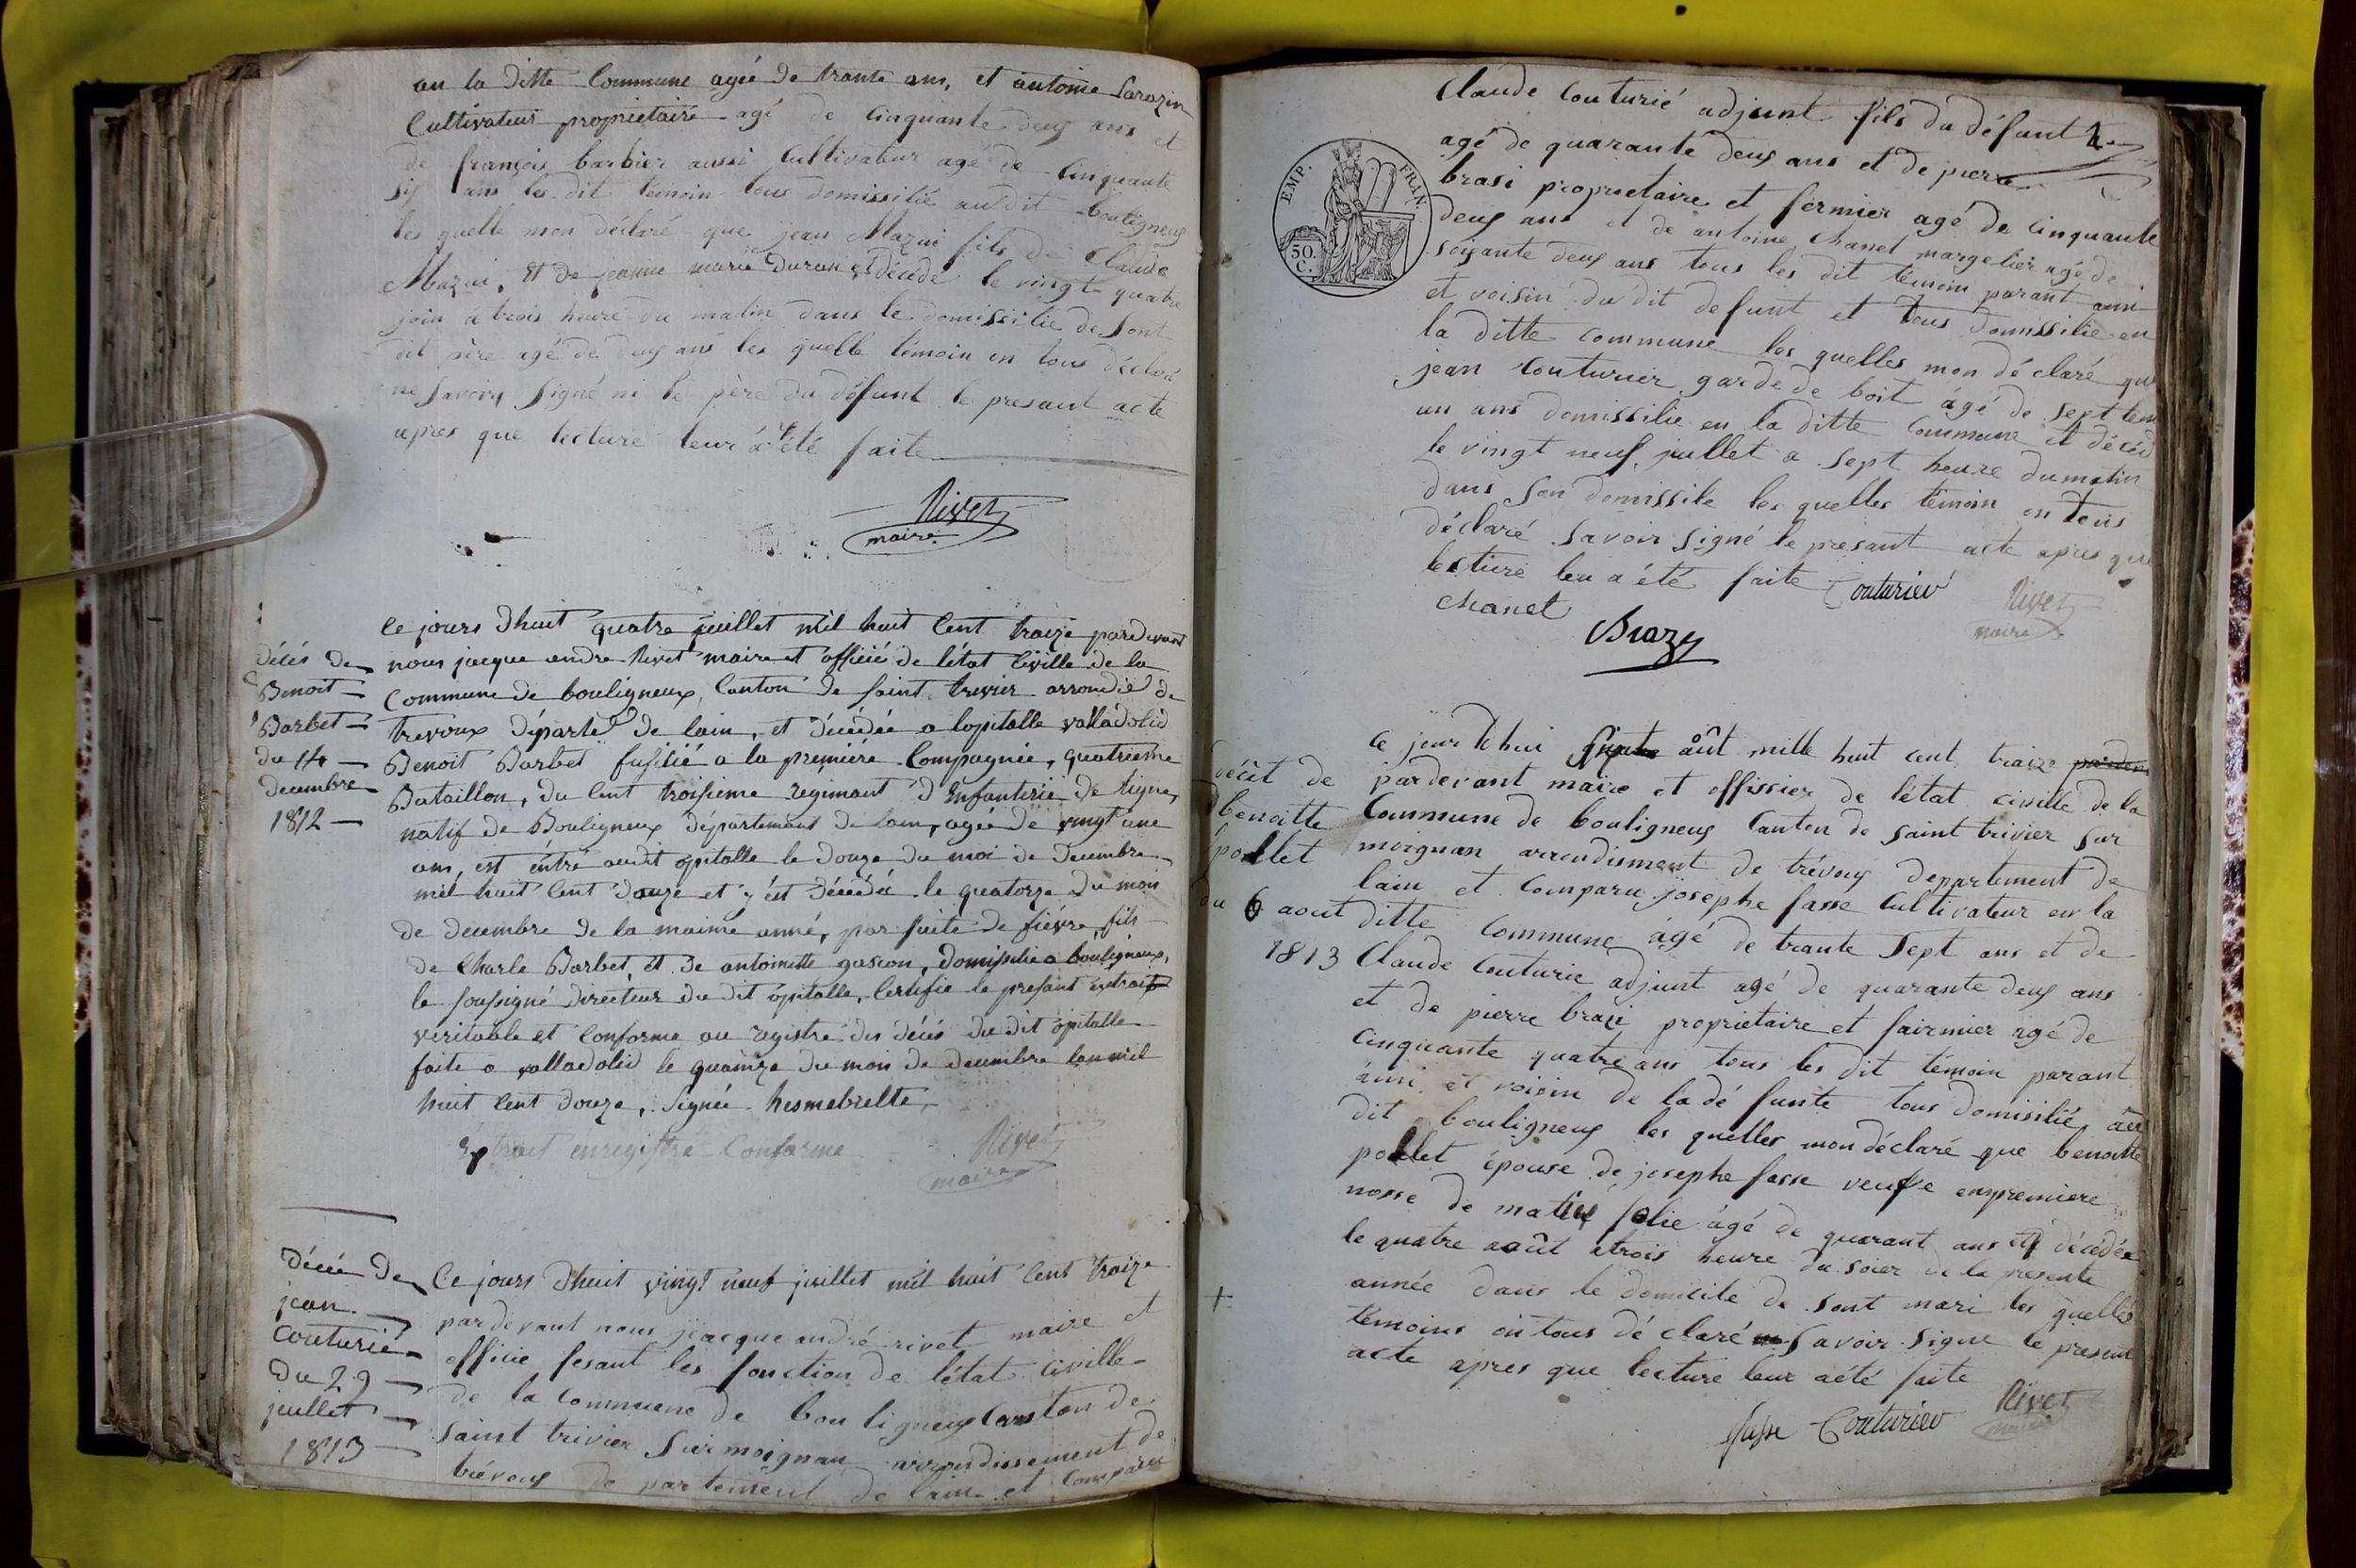 an la ditte Commune agée de trante ans, et antoine Sarazin
Cultivateur proprietaire agé de Cinquante deuy ans et
de françois barbier aussi Cultivateur agé de Cinquante
siy ans les dit temoin tous domissilié au dit bouligneuy
les quelle mon déclaré que jean Mazui fils de Claude
Mazui, et de jeanne marie Duran et décédé le vingt quatre
join a trois heure du matin dans le domissilie de sont
dit père agé de deuy ans les quelle témoin on tous déclaré
ne savoiry signé ni le père du défunt le presant acte
apres que lecture leur a été faite
Rivet
maire
Ce jours dhuit quatre juillet mil huit Cent traize pardevant
nous jacque andre Rivet maire et officié de l'état Civille de la
Commune de bouligneux, Canton de saint trevier arrondié de
trevoux départe de lain, et décédée a lopitalle valladolid
Benoit Barbet fusilié a la première Compagnie, quatrieme
Bataillon, du Cent troisieme regimant d'Enfanterie de ligne,
natif de Bouligneux département de lain, agée de vingt une
ans, est éntré audit opitalle le douze du moi de decembre
mil huit Cent douze et y est décédée le quatorze du mois
de decembre de la maime anné, par suite de fièvre, fils
de Charle Barbet, et de antoinette gascon, domisilié a bouligneux,
le soussigné directeur du dit opitalle, Certifie le présant extrait
veritable et Conforme au registre des décès du dit opitalle
faite a valladolid le quainze du mois de decembre lan mil
huit Cent douze, Signée hesmebrelte,
Extrait enregistré Conforme
Rivet
maire
décés de
Benoit
Barbet
du 14
decembre
1812
décée de
jean
couturié
du 29
juillet
1813
Ce jours dhuit vingt neuf juillet mil huit Cent traize
pardevant nous jeacque andré rivet maire et
officié fesant les fonction de l'état Civille
de la Commune de bouligneuy Canton de
saint trivier sur moignan arrondissement de
trévouy de partement de lain et Comparu
Claude Couturié adjoint fils du défunt
agé de quarante deuy ans et de pierre
brasi proprietaire et fermier agé de Cinquante
deuy ans et de antoine Chanet margelier agé de
soisante deuy ans tous les dit témoin parant ami
et voisin du dit defunt et tous domissilie en
la ditte commune les quelles mon déclaré que
jean Couturier garde de boit âgé de sept
un ans domissilie en la ditte Commune et décéd
le vingt neuf juillet a sept heure du matin
dans son domissile les quelles témoin on tous
déclaré savoir signé le presant acte apres que
lecture leu a été faite Couturier
Rivet
maire
Chanet
Brazy
EMP. FRAN.
50
C.
décit de
benoitte
pollet
du 6 aout
1813
Ce jour dhui août mille huit cent traize
pardevant maire et offissier de létat civille de la
Commune de bouligneuy Canton de saint trivier sur
moignan arrondisment de trévouy departement de
lain et Comparu josephe fasse Cultivateur en la
ditte Commune âgé de trante sept ans et de
Claude Couturie adjoint agé de quarante deuy ans
et de pierre brazi proprietaire et fairmier agé de
Cinquante quatre ans tous les dit témoin parant
ami et voisin de la défunte tous domisilié au
dit bouligneuy les quelles mon déclaré que benoitte
pollet épouse de josephe fasse veufe enpremiere
nosse de matieu folie âgé de quarant ans et décédée
le quatre août atrois heure du soier de la presente
année dans le domicile de sont mari les quelles
témoins on tous déclaré savoir signe le presant
acte apres que lecture leur a été faite
fasse Couturier
Rivet
maire